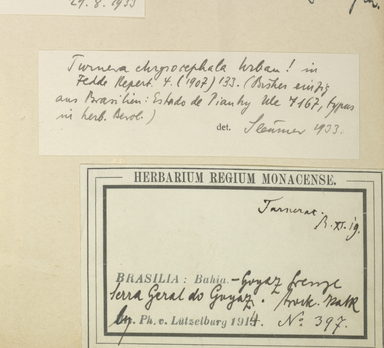 29.8.1933
Turnera chrysocephala Urban! in
Fedde Repert. 4. (1907) 133. (Bisher einzig
aus Brasilien: Estado de Piauhy Ule 7167, typus
in herb. Berol.)
det. Sleumer 933.
HERBARIUM REGIUM MONACENSE.
Turnerac.
BRASILIA: Bahia-Goyaz Grenze
Serra Geral do Goyaz. trock.
lg. Ph. v. Lützelburg 1914. No. 397.